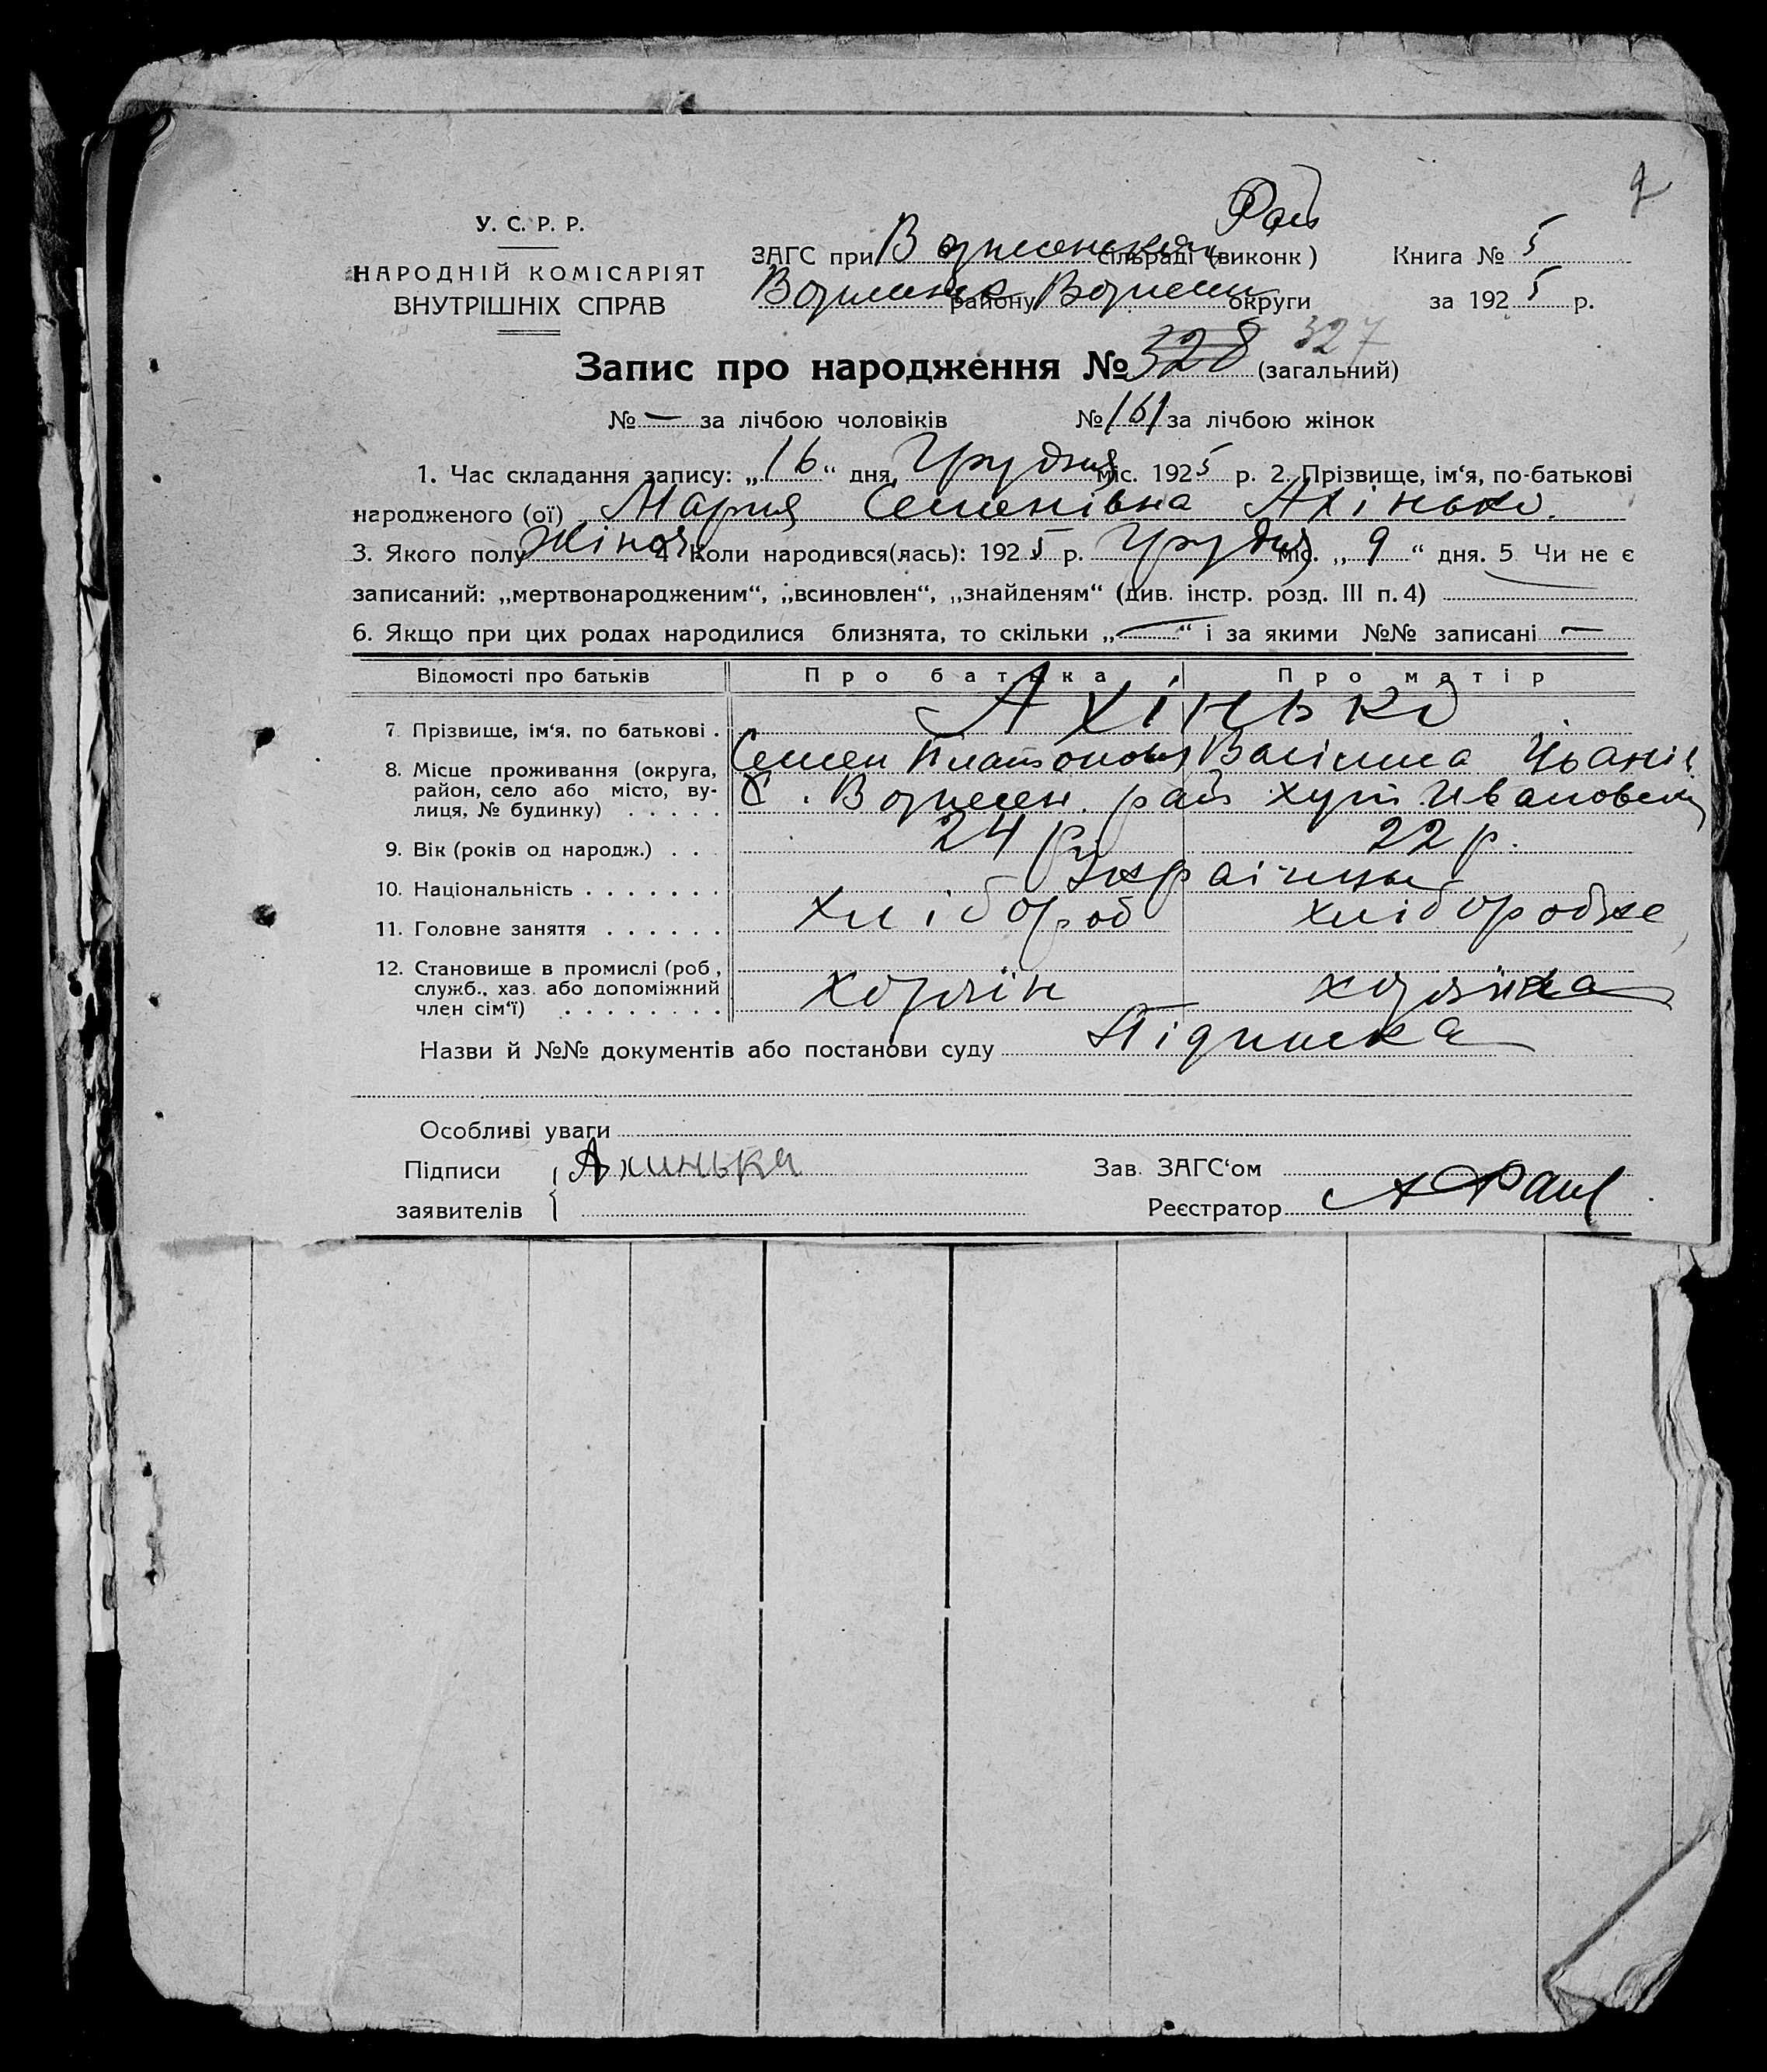 У. С. Р. Р.
НАРОДНІЙ КОМІСАРІЯТ
ВНУТРІШНІХ СПРАВ
Рай
ЗАГС при Вознесенськом сільраді (виконк) Книга № 5
Вознесенск району Вознесен округи за 1925 р.
Запис про народження № 328 327 (загальний)
№ — за лічбою чоловіків № 161 за лічбою жінок
1. Час складання запису: „16“ дня Грудня міс. 1925 р. 2. Прізвище, ім‘я, по-батькові
народженого (ої) Мария Семенівна Ахінько.
3. Якого полу Жіноч 4 Коли народився(лась): 1925 р. Грудня міс. „9“ дня. 5 Чи не є
записаний: „мертвонародженим“, „всиновлен“, „знайденям“ (див. інстр. розд. III п. 4) —
6. Якщо при цих родах народилися близнята, то скільки „—“ і за якими №№ записані —
Відомості про батьків Про батька Про матір
Ахінько
7 Прізвище, ім‘я. по батькові .
Семен Платонович Ванів.
8. Місце проживання (округа,
район, село або місто, ву-
лиця, № будинку) . . . . .
С. Вознесен. рай хут. Ивановка
9. Вік (років од народж.) . . . 24 р. 22 р.
10. Національність . . . . . . . Українці
11. Головне заняття . . . . . . хлібороб хлібороб
12. Становище в промислі (роб,
служб., хаз. або допоміжний
член сім‘ї) . . . . . . . .
хозяїн хозяйка
Назви й №№ документів або постанови суду Підписка
Особливі уваги
Підписи Ахинька Зав. ЗАГС‘ом
заявителів Реєстратор